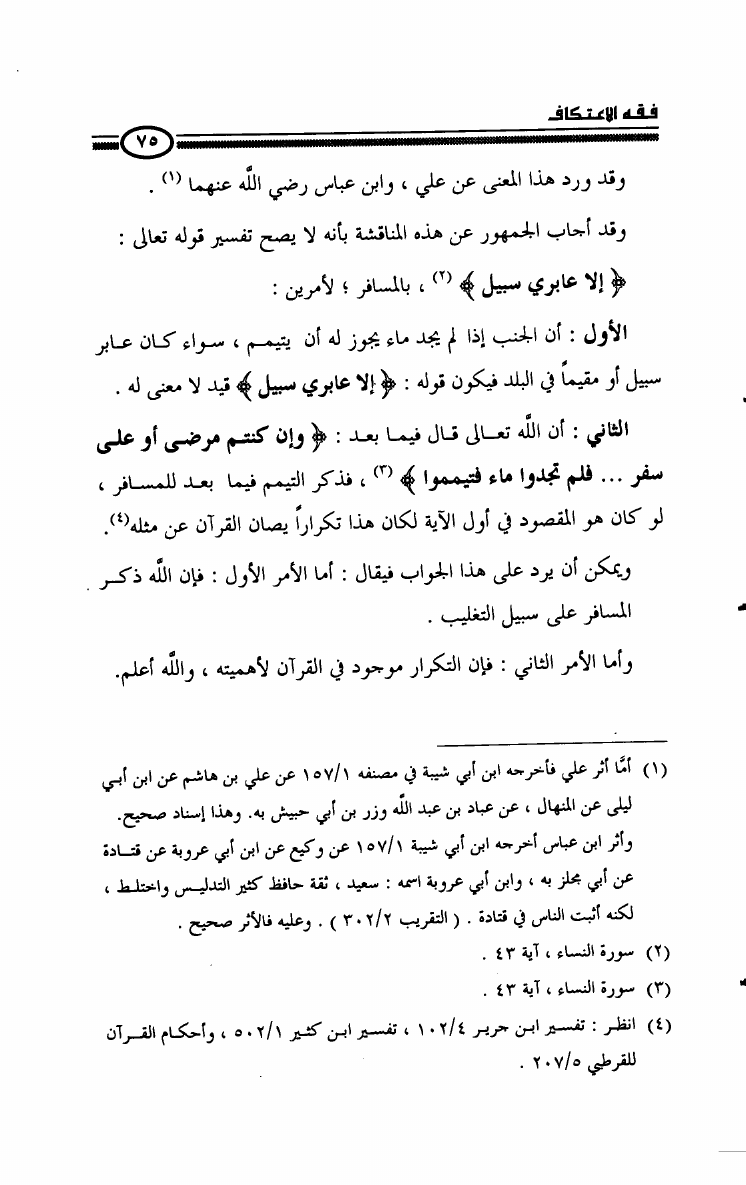 فقه الاعتكاف
٧٥
وقد ورد هذا المعنى عن علي ، وابن عباس رضي اللَّه عنهما (١) .
وقد أجاب الجمهور عن هذه المناقشة بأنه لا يصح تفسير قوله تعالى :
﴿ إلا عابري سبيل ﴾ (٢) ، بالمسافر ؛ لأمرين :
الأول : أن الجنب إذا لم يجد ماء يجوز له أن يتيمم ، سواء كان عابر
سبيل أو مقيماً في البلد فيكون قوله : ﴿ إلا عابري سبيل ﴾ قيد لا معنى له .
الثاني : أن اللَّه تعالى قال فيما بعد : ﴿ وإن كنتم مرضى أو على
سفر ... فلم تجدوا ماء فتيمموا ﴾ (٣) ، فذكر التيمم فيما بعد للمسافر ،
لو كان هو المقصود في أول الآية لكان هذا تكراراً يصان القرآن عن مثله(٤).
ويمكن أن يرد على هذا الجواب فيقال : أما الأمر الأول : فإن اللَّه ذكر
المسافر على سبيل التغليب .
وأما الأمر الثاني : فإن التكرار موجود في القرآن لأهميته ، واللَّه أعلم.
(١) أمَّا أثر علي فأخرجه ابن أبي شيبة في مصنفه ١٥٧/١ عن علي بن هاشم عن ابن أبي
ليلى عن المنهال ، عن عباد بن عبد اللَّه وزر بن أبي حبيش به. وهذا إسناد صحيح.
وأثر ابن عباس أخرجه ابن أبي شيبة ١٥٧/١ عن وكيع عن ابن أبي عروبة عن قتادة
عن أبي مجلز به ، وابن أبي عروبة اسمه : سعيد ، ثقة حافظ كثير التدليس واختلط ،
لكنه أثبت الناس في قتادة . ( التقريب ٣٠٢/٢ ) . وعليه فالأثر صحيح .
(٢) سورة النساء ، آية ٤٣ .
(٣) سورة النساء ، آية ٤٣ .
(٤) انظر : تفسير ابن جرير ١٠٢/٤ ، تفسير ابن كثير ٥٠٢/١ ، وأحكام القرآن
للقرطبي ٢٠٧/٥ .